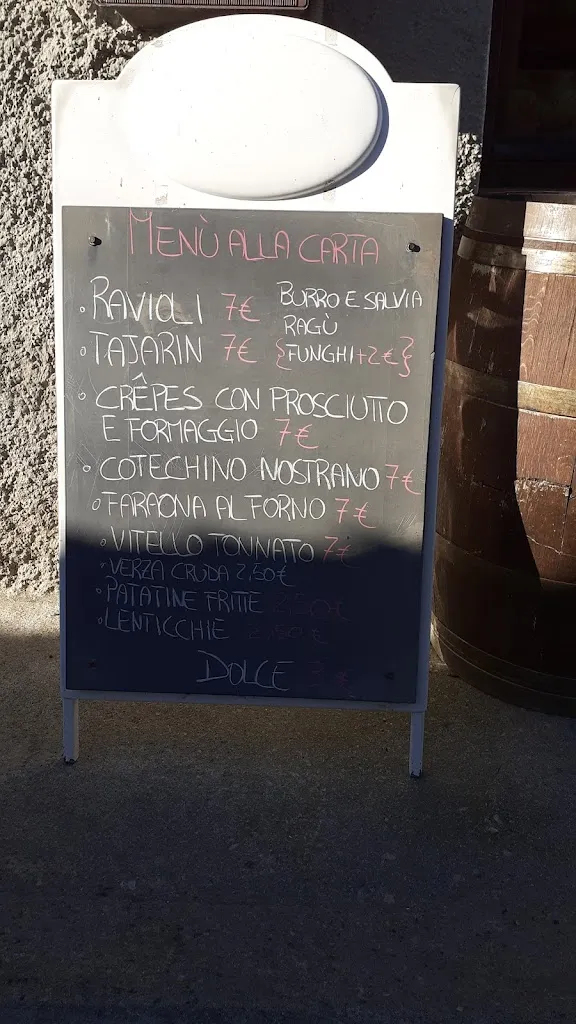 MENÙ ALLA CARTA
• RAVIOLI 7€ BURRO E SALVIA
RAGÙ
• TAJARIN 7€ {FUNGHI +2€}
• CRÊPES CON PROSCIUTTO
E FORMAGGIO 7€
• COTECHINO NOSTRANO 7€
• FARAONA AL FORNO 7€
• VITELLO TONNATO 7€
• VERZA CRUDA 2,50€
• PATATINE FRITTE 2,50€
• LENTICCHIE 2,50€
DOLCE